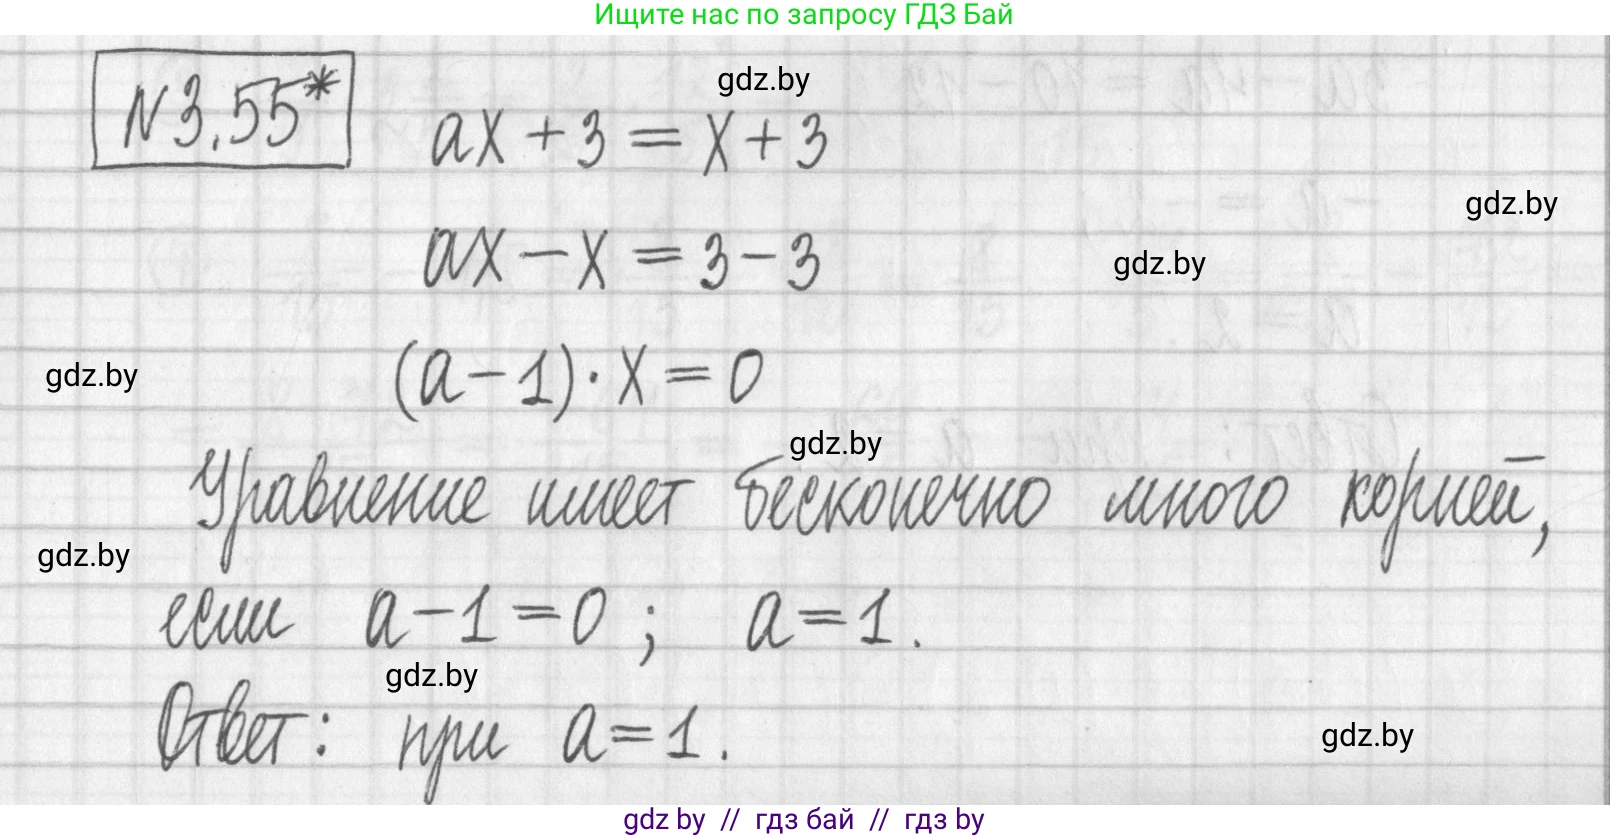 Ищите нас по запросу ГДЗ Бай
gdz.by
N3.55* ax + 3 = x + 3
gdz.by
ax - x = 3 - 3
gdz.by
gdz.by
(a - 1) · x = 0
gdz.by
Уравнение имеет бесконечно много корней,
gdz.by
если a - 1 = 0 ; a = 1.
gdz.by
Ответ: при a = 1.
gdz.by
gdz.by // гдз бай // гдз by